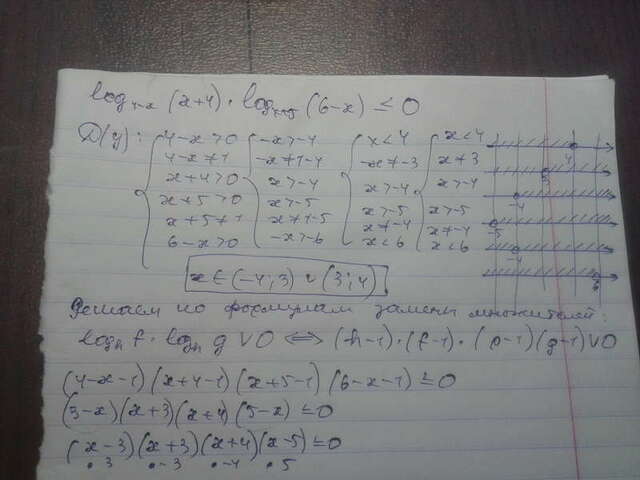 log₄₋ₓ (x+4) · logₓ₊₅ (6-x) ≤ 0
D(y): { 4-x>0 { -x>-4 { x<4 { x<4
4-x≠1 -x≠1-4 -x≠-3 x≠3
x+4>0 x>-4 x>-4 x>-4
x+5>0 x>-5 x>-5 x>-5
x+5≠1 x≠1-5 x≠-4 x≠-4
6-x>0 -x>-6 x<6 x<6
4
3
-4
-5
-4
6
x ∈ (-4;3) ∪ (3;4)
Решаем по формулам замены множителей:
logₕ f · logₚ g ∨ 0 ⟺ (h-1)·(f-1)·(p-1)(g-1) ∨ 0
(4-x-1)(x+4-1)(x+5-1)(6-x-1) ≤ 0
(3-x)(x+3)(x+4)(5-x) ≤ 0
(x-3)(x+3)(x+4)(x-5) ≤ 0
• 3 • -3 • -4 • 5